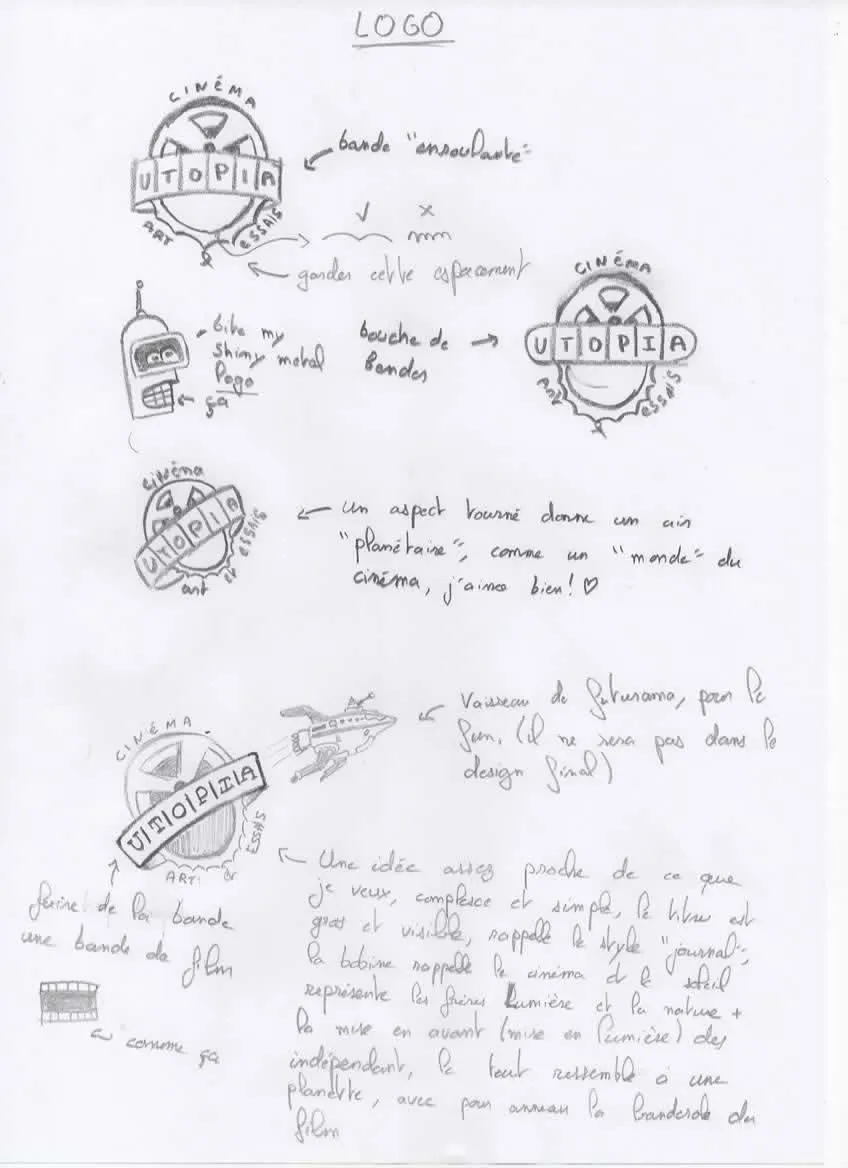 LOGO
CINÉMA
UTOPIA
ART & ESSAIS
bande "enroulante"
✓ ×
garder cette espacement
bite my
shiny metal
logo
ça
bouche de
bender
CINÉMA
UTOPIA
Art & ESSAIS
cinéma
UTOPIA
art et ESSAIS
un aspect tourné donne un air
"planétaire", comme un "monde" du
cinéma, j'aime bien! ♡
Vaisseau de futurama, pour le
fun. (il ne sera pas dans le
design final)
CINÉMA
U|T|O|P|I|A
ART et ESSAIS
de la bande
une bande de
film
comme ça
Une idée assez proche de ce que
je veux, complexe et simple, le titre est
gros et visible, rappelle le style "journal",
la bobine rappelle le cinéma et le soleil
représente les frères Lumière et la nature +
la mise en avant (mise en lumière) des
indépendant, le tout ressemble à une
planette, avec pour anneau la banderole du
film